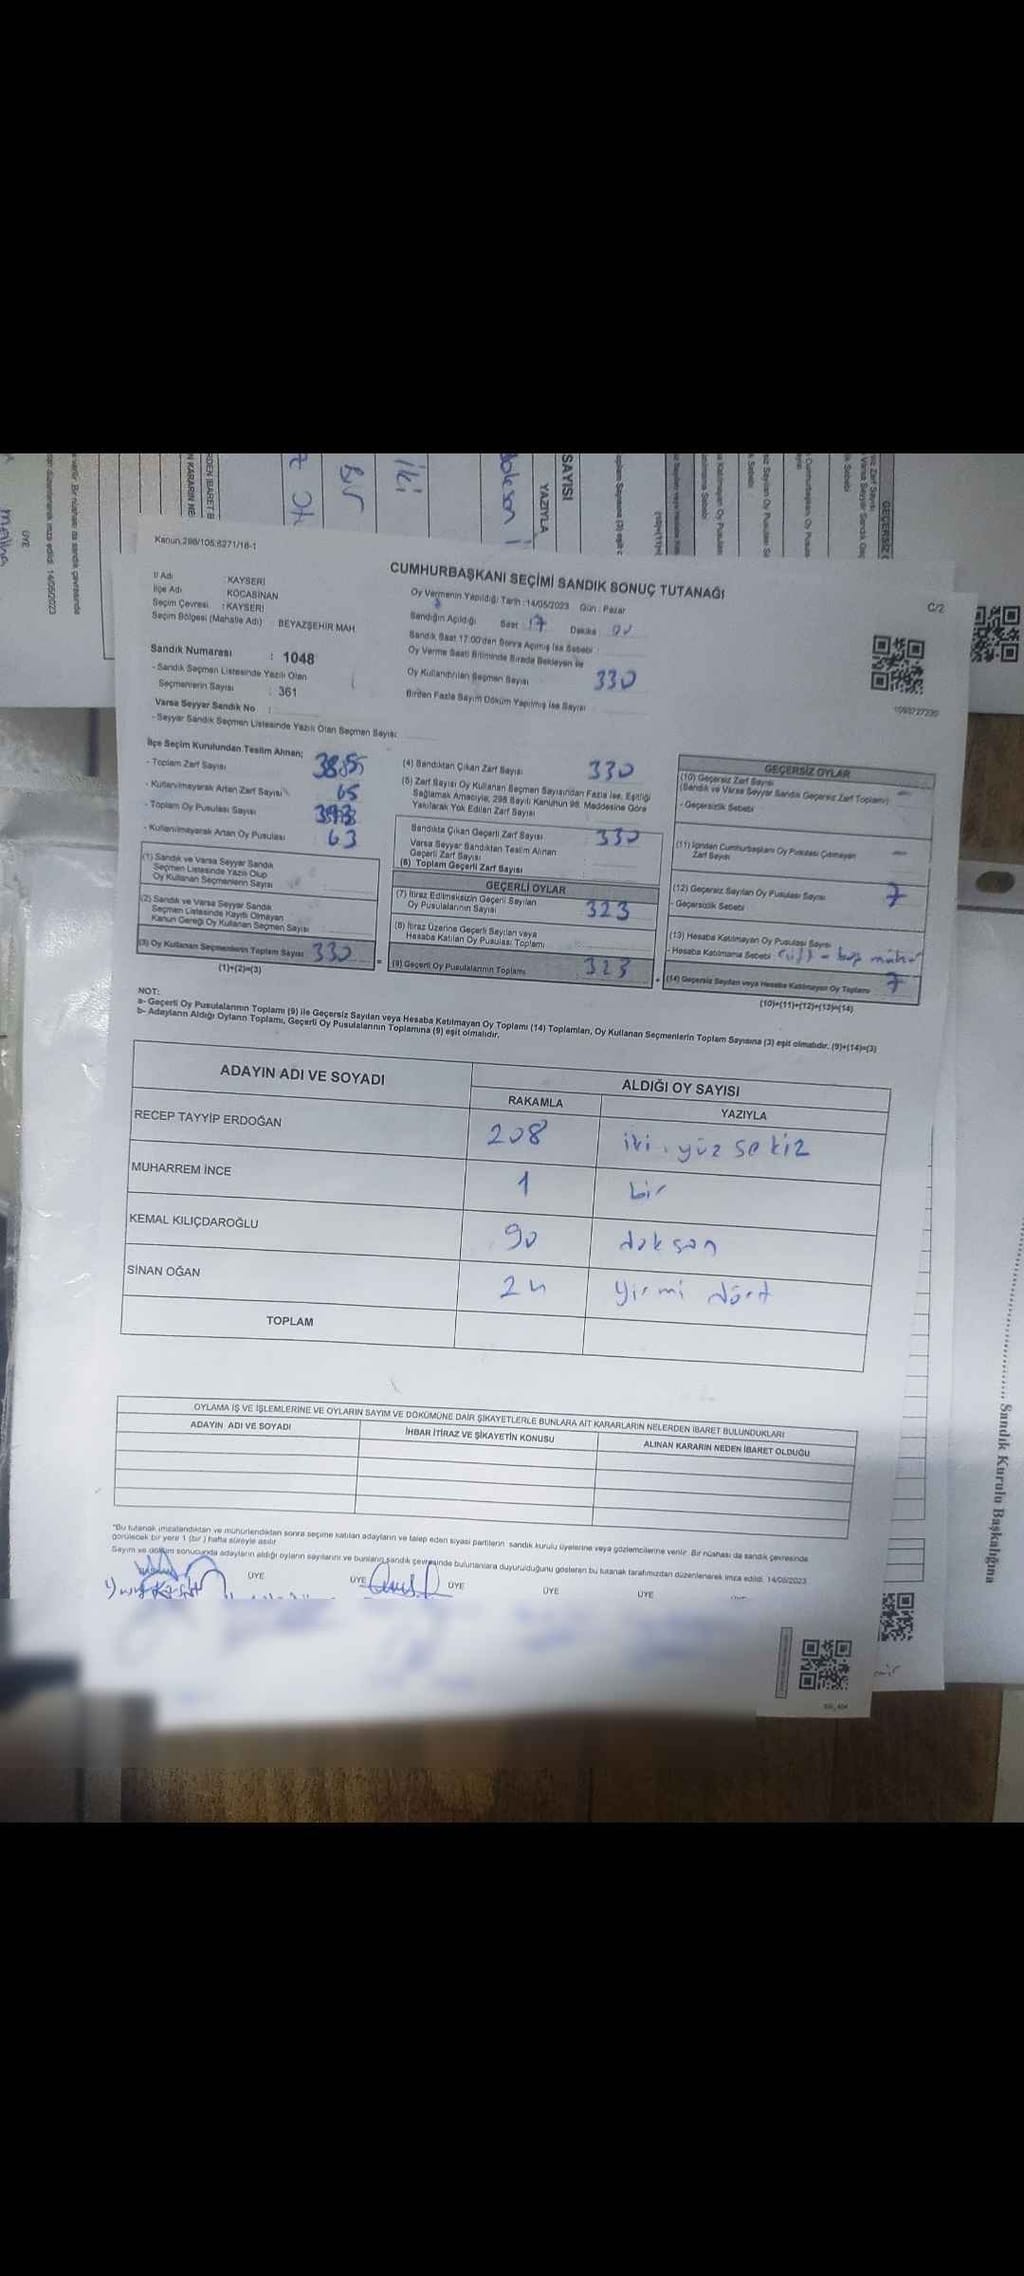 Kanun;298/105,6271/16-1
CUMHURBAŞKANI SEÇİMİ SANDIK SONUÇ TUTANAĞI
C/2
İl Adı : KAYSERİ
İlçe Adı : KOCASİNAN
Seçim Çevresi : KAYSERİ
Seçim Bölgesi (Mahalle Adı) BEYAZŞEHİR MAH
Sandık Numarası : 1048
- Sandık Seçmen Listesinde Yazılı Olan
Seçmenlerin Sayısı : 361
Varsa Seyyar Sandık No :
- Seyyar Sandık Seçmen Listesinde Yazılı Olan Seçmen Sayısı:
Oy Vermenin Yapıldığı Tarih : 14/05/2023 Gün : Pazar
Sandığın Açıldığı Saat 17 Dakika 00
Sandık Saat 17.00'den Sonra Açılmış İse Sebebi :
Oy Verme Saati Bitiminde Sırada Bekleyen ile
Oy Kullandırılan Seçmen Sayısı 330
Birden Fazla Sayım Döküm Yapılmış İse Sayısı
İlçe Seçim Kurulundan Teslim Alınan;
- Toplam Zarf Sayısı
- Kullanılmayarak Artan Zarf Sayısı 65
- Toplam Oy Pusulası Sayısı
- Kullanılmayarak Artan Oy Pusulası 63
(1) Sandık ve Varsa Seyyar Sandık
Seçmen Listesinde Yazılı Olup
Oy Kullanan Seçmenlerin Sayısı
(2) Sandık ve Varsa Seyyar Sandık
Seçmen Listesinde Kayıtlı Olmayan
Kanun Gereği Oy Kullanan Seçmen Sayısı
(3) Oy Kullanan Seçmenlerin Toplam Sayısı 330
(1)+(2)=(3)
(4) Sandıktan Çıkan Zarf Sayısı 330
(5) Zarf Sayısı Oy Kullanan Seçmen Sayısından Fazla İse, Eşitliği
Sağlamak Amacıyla, 298 Sayılı Kanunun 98. Maddesine Göre
Yakılarak Yok Edilen Zarf Sayısı
Sandıkta Çıkan Geçerli Zarf Sayısı 330
Varsa Seyyar Sandıktan Teslim Alınan
Geçerli Zarf Sayısı
(6) Toplam Geçerli Zarf Sayısı
GEÇERLİ OYLAR
(7) İtiraz Edilmeksizin Geçerli Sayılan
Oy Pusulalarının Sayısı 323
(8) İtiraz Üzerine Geçerli Sayılan veya
Hesaba Katılan Oy Pusulası Toplamı
(9) Geçerli Oy Pusulalarının Toplamı 323
GEÇERSİZ OYLAR
(10) Geçersiz Zarf Sayısı
(Sandık ve Varsa Seyyar Sandık Geçersiz Zarf Toplamı)
- Geçersizlik Sebebi
(11) İçinden Cumhurbaşkanı Oy Pusulası Çıkmayan
Zarf Sayısı
(12) Geçersiz Sayılan Oy Pusulası Sayısı 7
- Geçersizlik Sebebi
(13) Hesaba Katılmayan Oy Pusulası Sayısı
- Hesaba Katılmama Sebebi çift - boş mühür
(14) Geçersiz Sayılan veya Hesaba Katılmayan Oy Toplamı 7
(10)+(11)+(12)+(13)=(14)
NOT:
a- Geçerli Oy Pusulalarının Toplamı (9) ile Geçersiz Sayılan veya Hesaba Katılmayan Oy Toplamı (14) Toplamları, Oy Kullanan Seçmenlerin Toplam Sayısına (3) eşit olmalıdır. (9)+(14)=(3)
b- Adayların Aldığı Oyların Toplamı, Geçerli Oy Pusulalarının Toplamına (9) eşit olmalıdır.
ADAYIN ADI VE SOYADI
ALDIĞI OY SAYISI
RAKAMLA YAZIYLA
RECEP TAYYİP ERDOĞAN 208 iki yüz sekiz
MUHARREM İNCE 1 bir
KEMAL KILIÇDAROĞLU 90 doksan
SİNAN OĞAN 24 yirmi dört
TOPLAM
OYLAMA İŞ VE İŞLEMLERİNE VE OYLARIN SAYIM VE DÖKÜMÜNE DAİR ŞİKAYETLERLE BUNLARA AİT KARARLARIN NELERDEN İBARET BULUNDUKLARI
ADAYIN ADI VE SOYADI
İHBAR İTİRAZ VE ŞİKAYETİN KONUSU
ALINAN KARARIN NEDEN İBARET OLDUĞU
"Bu tutanak imzalandıktan ve mühürlendikten sonra seçime katılan adayların ve talep eden siyasi partilerin sandık kurulu üyelerine veya gözlemcilerine verilir. Bir nüshası da sandık çevresinde
görülecek bir yere 1 (bir) hafta süreyle asılır
Sayım ve döküm sonucunda adayların aldığı oyların sayılarını ve bunların sandık çevresinde bulunanlara duyurulduğunu gösteren bu tutanak tarafımızdan düzenlenerek imza edildi. 14/05/2023
ÜYE ÜYE ÜYE ÜYE ÜYE
SAYISI
YAZIYLA
iki
Bir
Sandık Kurulu Başkalığına